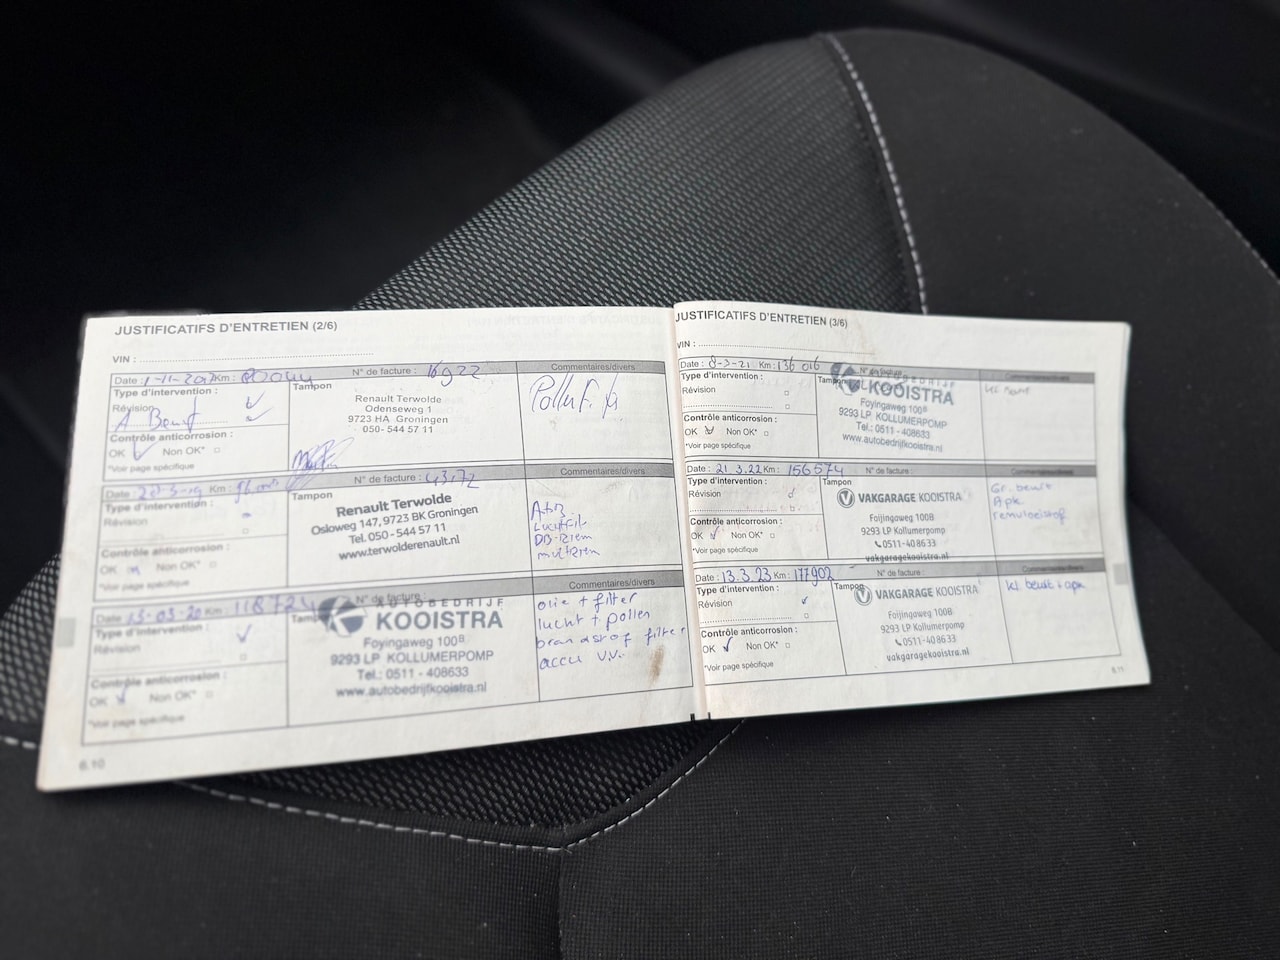 JUSTIFICATIFS D'ENTRETIEN (2/6)
VIN :
Date : 1-11-2017 Km : N° de facture : 16922 Commentaires/divers
Type d'intervention : Tampon
Révision
A Beurt
Contrôle anticorrosion :
OK Non OK*
*Voir page spécifique
Renault Terwolde
Odenseweg 1
9723 HA Groningen
050- 544 57 11
Date : Km : N° de facture : 43172 Commentaires/divers
Type d'intervention : Tampon
Révision
Contrôle anticorrosion :
OK Non OK*
*Voir page spécifique
Renault Terwolde
Osloweg 147, 9723 BK Groningen
Tel. 050 - 544 57 11
www.terwolderenault.nl
Luchtfilt
DB-riem
multiriem
Date : 13-03-20 Km : 118724 N° de facture : Commentaires/divers
Type d'intervention : Tampon
Révision
Contrôle anticorrosion :
OK Non OK*
*Voir page spécifique
AUTOBEDRIJF
KOOISTRA
Foyingaweg 100B
9293 LP KOLLUMERPOMP
Tel.: 0511 - 408633
www.autobedrijfkooistra.nl
olie + filter
lucht + pollen
brandstof filter
accu v.v.
6.10
JUSTIFICATIFS D'ENTRETIEN (3/6)
VIN :
Date : 8-3-21 Km : 136 016 N° de facture : Commentaires/divers
Type d'intervention : Tampon
Révision
Contrôle anticorrosion :
OK Non OK*
*Voir page spécifique
AUTOBEDRIJF
KOOISTRA
Foyingaweg 100B
9293 LP KOLLUMERPOMP
Tel.: 0511 - 408633
www.autobedrijfkooistra.nl
Date : 21.3.22 Km : 156574 N° de facture : Commentaires/divers
Type d'intervention : Tampon
Révision
Contrôle anticorrosion :
OK Non OK*
*Voir page spécifique
VAKGARAGE KOOISTRA
Foijingaweg 100B
9293 LP Kollumerpomp
0511-40 86 33
vakgaragekooistra.nl
Gr. beurt
Apk
remvloeistof
Date : 13.3.23 Km : 177902 N° de facture : Commentaires/divers
Type d'intervention : Tampon
Révision
Contrôle anticorrosion :
OK Non OK*
*Voir page spécifique
VAKGARAGE KOOISTRA
Foijingaweg 100B
9293 LP Kollumerpomp
0511-40 86 33
vakgaragekooistra.nl
kl beurt + apk
6.11